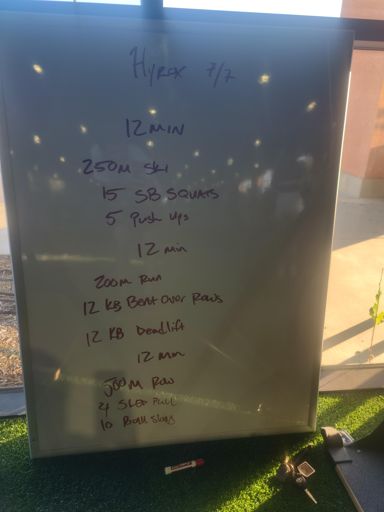 Hyrox 7/7
12 MIN
250m Ski
15 SB SQUATS
5 Push Ups
12 min
200m Run
12 KB Bent Over Rows
12 KB Deadlift
12 min
500 M Row
4 Sled Pull
10 Ball Slams